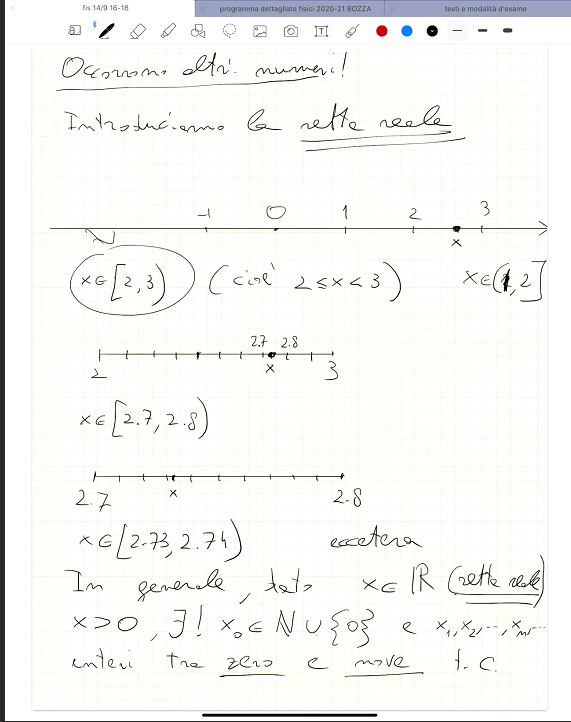 fis 14/9 16-18
programma dettagliato fisici 2020-21 BOZZA
testi e modalità d'esame
Occorrono altri numeri!
Introduciamo la retta reale
-1 0 1 2 3
x
x∈[2,3) (cioè 2≤x<3) x∈(1,2]
2.7 2.8
2 x 3
x∈[2.7, 2.8)
x
2.7 2.8
x∈[2.73, 2.74) eccetera
In generale, dato x∈ℝ (retta reale)
x>0, ∃! x₀∈ℕ∪{0} e x₁,x₂,--,xₘ,--
interi tra zero e nove t.c.